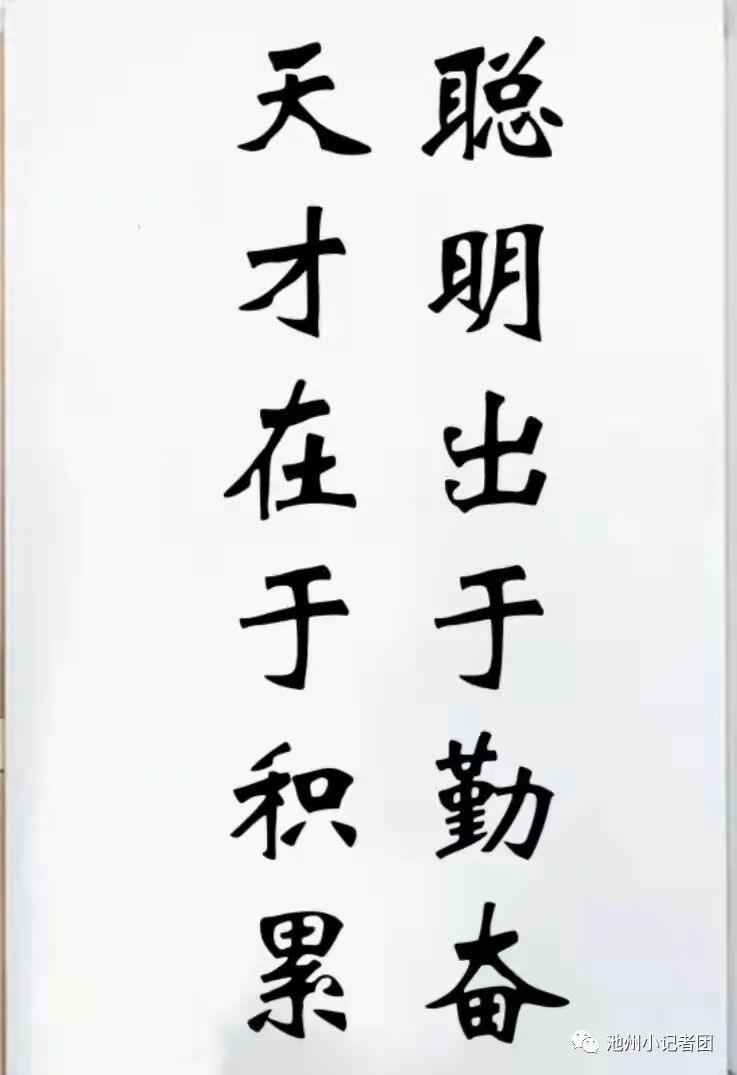 聪明出于勤奋
天才在于积累
池州小记者团